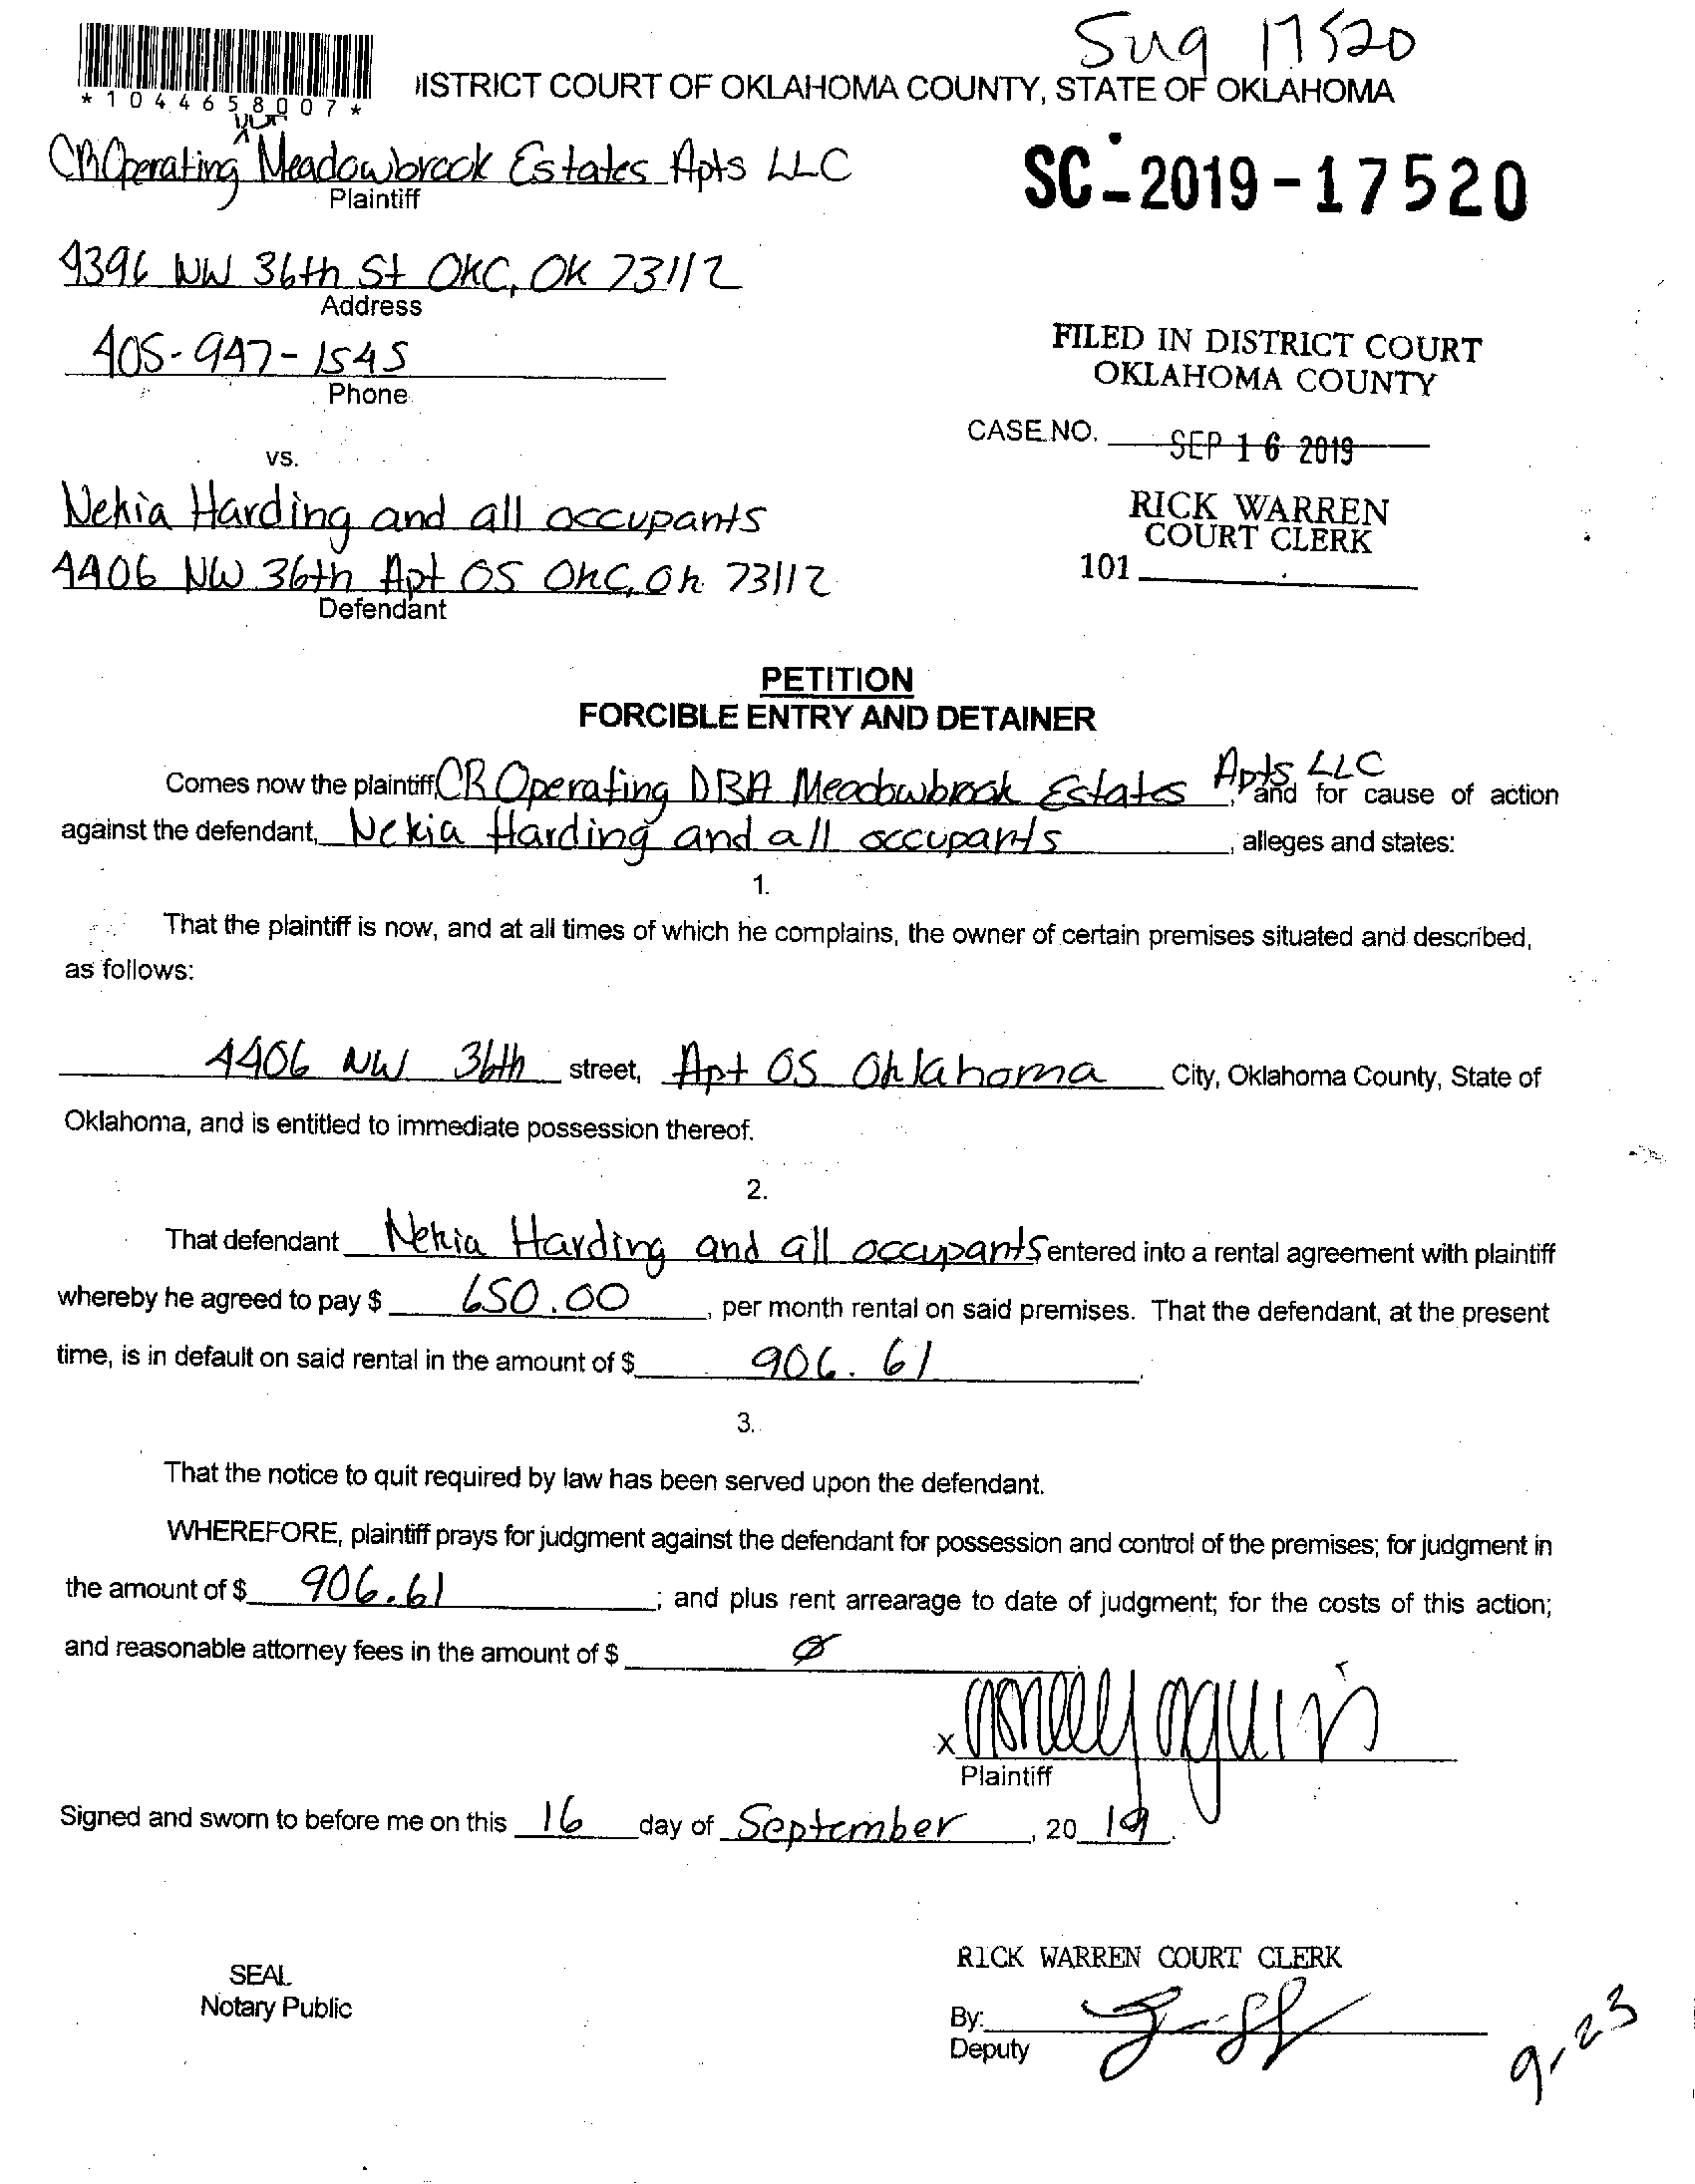 Sug 17520
*1044658007*
ISTRICT COURT OF OKLAHOMA COUNTY, STATE OF OKLAHOMA
CR Operating Meadowbrook Estates Apts LLC
Plaintiff
SC-2019-17520
4396 NW 36th St OKC, OK 73112
Address
405-947-1545
Phone
FILED IN DISTRICT COURT
OKLAHOMA COUNTY
CASE NO. SEP 16 2019
vs.
RICK WARREN
COURT CLERK
Nekia Harding and all occupants
101
4406 NW 36th Apt 05 OKC, Ok 73112
Defendant
PETITION
FORCIBLE ENTRY AND DETAINER
Comes now the plaintiff, CR Operating DBA Meadowbrook Estates Apts LLC, and for cause of action
against the defendant, Nekia Harding and all occupants, alleges and states:
1.
That the plaintiff is now, and at all times of which he complains, the owner of certain premises situated and described,
as follows:
4406 NW 36th street, Apt 05 Oklahoma City, Oklahoma County, State of
Oklahoma, and is entitled to immediate possession thereof.
2.
That defendant Nekia Harding and all occupants entered into a rental agreement with plaintiff
whereby he agreed to pay $ 650.00, per month rental on said premises. That the defendant, at the present
time, is in default on said rental in the amount of $ 906.61.
3.
That the notice to quit required by law has been served upon the defendant.
WHEREFORE, plaintiff prays for judgment against the defendant for possession and control of the premises; for judgment in
the amount of $ 906.61; and plus rent arrearage to date of judgment; for the costs of this action;
and reasonable attorney fees in the amount of $ Ø
x
Plaintiff
Signed and sworn to before me on this 16 day of September, 2019.
RICK WARREN COURT CLERK
SEAL
Notary Public
By:
Deputy
9-23